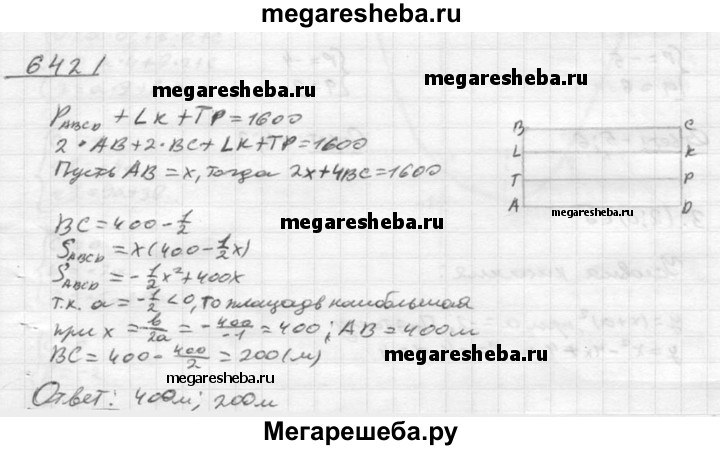 megaresheba.ru
642
P ABCD + LK + TP = 1600
2 · AB + 2 · BC + LK + TP = 1600
Пусть AB = x, тогда 2x + 4BC = 1600
BC = 400 - 1/2
S ABCD = x(400 - 1/2 x)
S ABCD = -1/2 x² + 400x
т.к. a = -1/2 < 0, то площадь наибольшая
при x = -b/2a = -400/-1 = 400; AB = 400м
BC = 400 - 400/2 = 200(м)
Ответ: 400м; 200м
B C
L K
T P
A D
megaresheba.ru
megaresheba.ru
megaresheba.ru
megaresheba.ru
megaresheba.ru
megaresheba.ru
Мегарешеба.ру